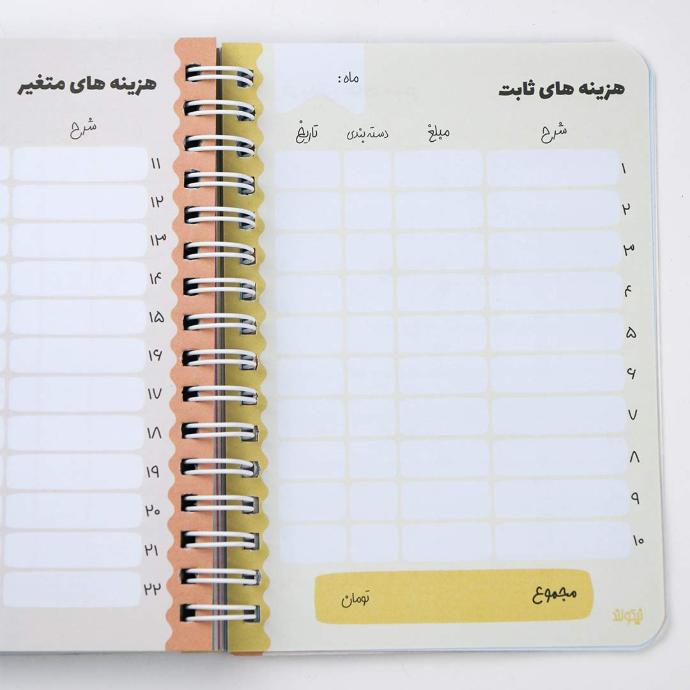 هزینه های ثابت
ماه:
شرح مبلغ دسته بندی تاریخ
۱
۲
۳
۴
۵
۶
۷
۸
۹
۱۰
مجموع تومان
نیکولند
هزینه های متغیر
شرح
۱۱
۱۲
۱۳
۱۴
۱۵
۱۶
۱۷
۱۸
۱۹
۲۰
۲۱
۲۲